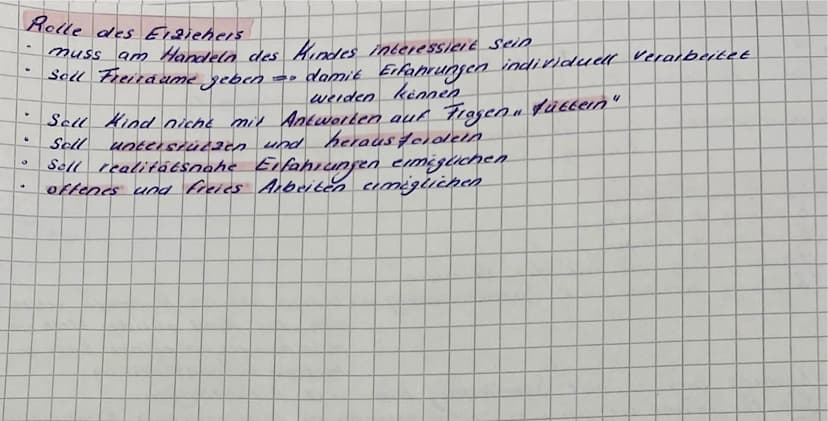 Rolle des Erziehers
· muss am Handeln des Kindes interessiert sein
· soll Freiräume geben => damit Erfahrungen individuell verarbeitet
werden können
· Soll Kind nicht mit Antworten auf Fragen „füttern"
· Soll unterstützen und herausfordern
· Soll realitätsnahe Erfahrungen ermöglichen
· offenes und freies Arbeiten ermöglichen